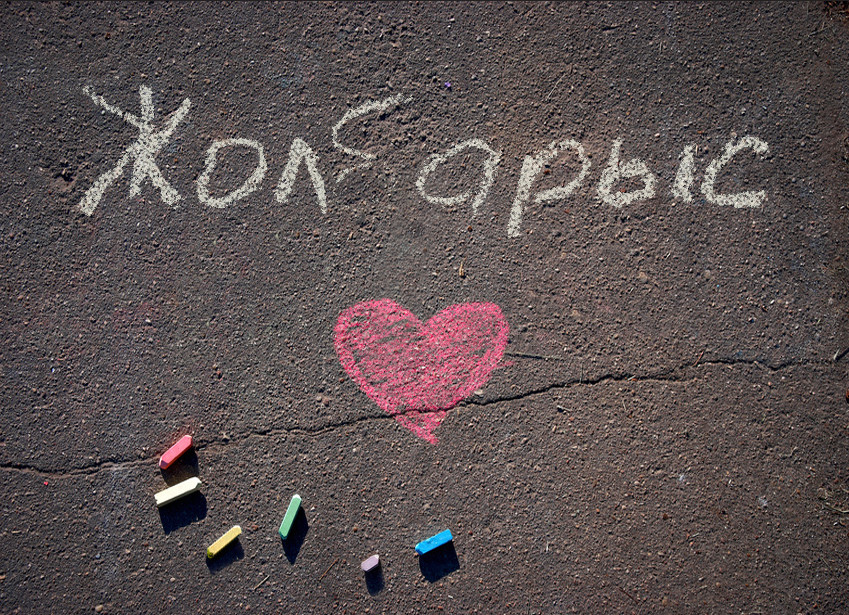 Жолбарыс